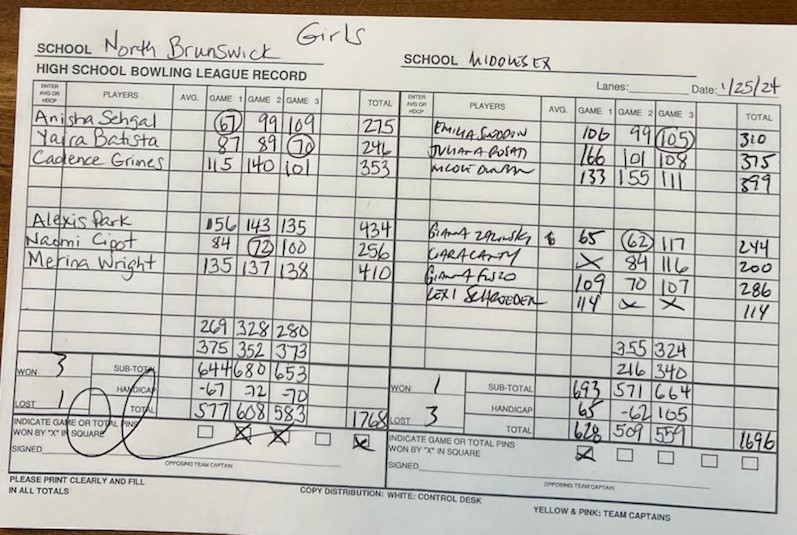 Girls
SCHOOL North Brunswick SCHOOL MIDDLESEX
HIGH SCHOOL BOWLING LEAGUE RECORD Lanes: Date: 1/25/24
ENTER AVG OR HDCP PLAYERS AVG. GAME 1 GAME 2 GAME 3 TOTAL ENTER AVG OR HDCP PLAYERS AVG. GAME 1 GAME 2 GAME 3 TOTAL
Anisha Sehgal 67 99 109 275 EMILIA 106 99 105 310
Yaira Batista 87 89 70 246 JULIANA ROSATI 166 101 108 375
Cadence Grines 115 140 101 353 NICOLE 133 155 111 399
Alexis Park 156 143 135 434 GIANNA ZALINSKY 65 62 117 244
Naomi Cipot 84 72 100 256 CIARA CANTY X 84 116 200
Merina Wright 135 137 138 410 GIANNA FUSZO 109 70 107 286
LEXI SCHROEDER 114 X X 114
269 328 280
375 352 373 355 324
216 340
WON 3 SUB-TOTAL 644 680 653 WON 1 SUB-TOTAL 693 571 664
HANDICAP -67 -72 -70 HANDICAP 65 -62 105
LOST 1 TOTAL 577 608 583 1768 LOST 3 TOTAL 628 509 559 1696
INDICATE GAME OR TOTAL PINS WON BY "X" IN SQUARE X X X INDICATE GAME OR TOTAL PINS WON BY "X" IN SQUARE X
SIGNED SIGNED
OPPOSING TEAM CAPTAIN OPPOSING TEAM CAPTAIN
PLEASE PRINT CLEARLY AND FILL IN ALL TOTALS COPY DISTRIBUTION: WHITE: CONTROL DESK YELLOW & PINK: TEAM CAPTAINS